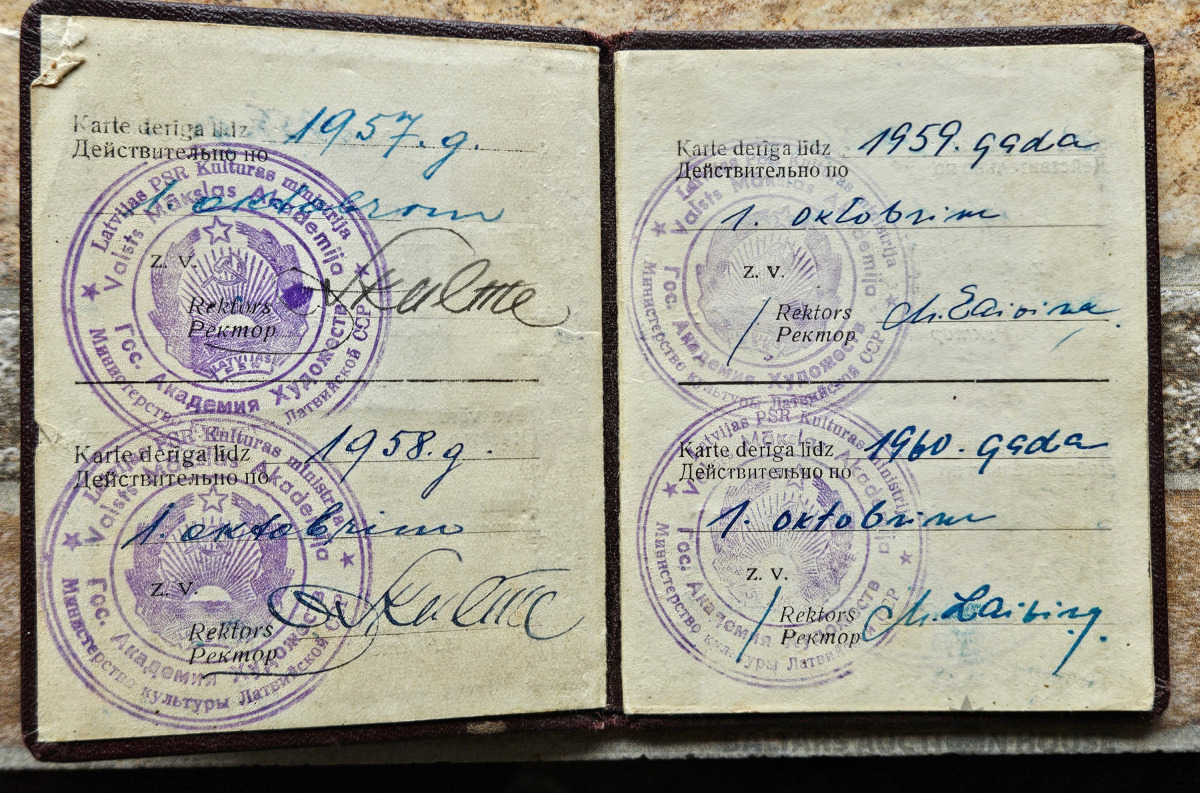 Karte derīga līdz 1957. g.
Действительно по
1. oktobrim
z. v.
Rektors Skulme
Ректор
Latvijas PSR Kulturas ministrija
Valsts Mākslas Akadēmija
Гос. Академия Художеств
Министерство культуры Латвийской ССР
LATVIJAS
PSR
Karte derīga līdz 1958. g.
Действительно по
1. oktobrim
z. v.
Rektors Skulme
Ректор
Latvijas PSR Kulturas ministrija
Valsts Mākslas Akadēmija
Гос. Академия Художеств
Министерство культуры Латвийской ССР
Karte derīga līdz 1959. gada
Действительно по
1. oktobrim
z. v.
/ Rektors
Ректор
Latvijas PSR Kulturas ministrija
Valsts Mākslas Akadēmija
Гос. Академия Художеств
Министерство культуры Латвийской ССР
Karte derīga līdz 1960. gada
Действительно по
1. oktobrim
z. v.
/ Rektors
Ректор
Latvijas PSR Kulturas ministrija
Valsts Mākslas Akadēmija
Гос. Академия Художеств
Министерство культуры Латвийской ССР